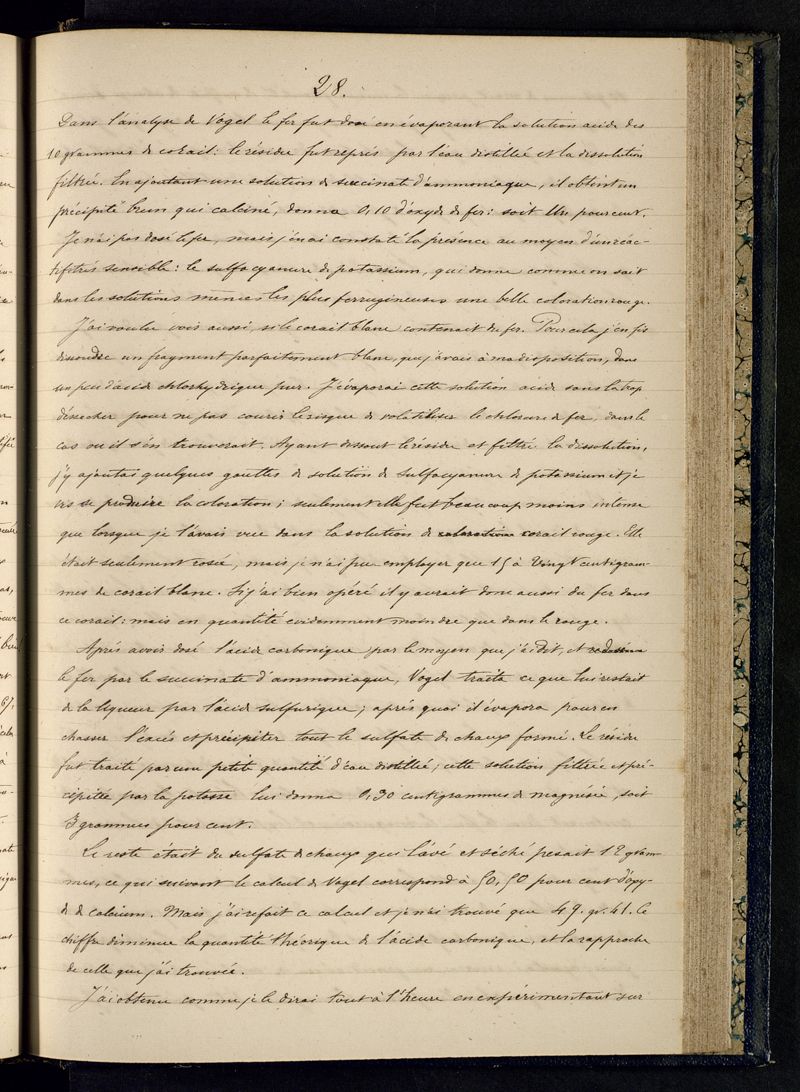 28.
Dans l'analyse de Vogel le fer fut dosé en évaporant la solution acide des
10 grammes de corail: le résidu fut repris par l'eau distillée et la dissolution
filtrée. En ajoutant une solution de succinate d'ammoniaque, il obtint un
précipité brun qui calciné, donna 0,10 d'oxyde de fer: soit Un pour cent.
Je n'ai pas dosé le fer, mais j'en ai constaté la présence au moyen d'un réac-
tif très sensible: le sulfocyanure de potassium, qui donne comme on sait
dans les solutions même les plus ferrugineuses une belle coloration rouge.
J'ai voulu voir aussi, si le corail blanc contenait du fer. Pour cela j'en fis
dissoudre un fragment parfaitement blanc, que j'avais à ma disposition, dans
un peu d'acide chlorhydrique pur. J'évaporai cette solution acide sans la trop
dessécher pour ne pas courir le risque de volatiliser le chlorure de fer, dans le
cas où il s'en trouverait. Ayant dissout le résidu et filtré la dissolution,
j'y ajoutai quelques gouttes de solution de sulfocyanure de potassium et je
vis se produire la coloration; seulement elle fut beaucoup moins intense
que lorsque je l'avais vue dans la solution de coloration corail rouge. Elle
était seulement rosée, mais je n'ai pu employer que 15 à Vingt centigram-
mes de corail blanc. Si j'ai bien opéré il y aurait donc aussi du fer dans
ce corail: mais en quantité évidemment moindre que dans le rouge.
Après avoir dosé l'acide carbonique par le moyen que j'ai dit, et
le fer par le succinate d'ammoniaque, Vogel traita ce que lui restait
de la liqueur par l'acide sulfurique; après quoi il évapora pour en
chasser l'excès et précipiter tout le sulfate de chaux formé. Le résidu
fut traité par une petite quantité d'eau distillée; cette solution filtrée et pré-
cipitée par la potasse lui donna 0,30 centigrammes de magnésie, soit
3 grammes pour cent.
Le reste était du sulfate de chaux qui lavé et séché pesait 12 gram-
mes, ce qui suivant le calcul de Vogel correspond à 50,50 pour cent d'oxy-
de de calcium. Mais j'ai refait ce calcul et je n'ai trouvé que 49. gr. 41. Ce
chiffre diminue la quantité théorique de l'acide carbonique, et la rapproche
de celle que j'ai trouvée.
J'ai obtenu comme je le dirai tout à l'heure en expérimentant sur